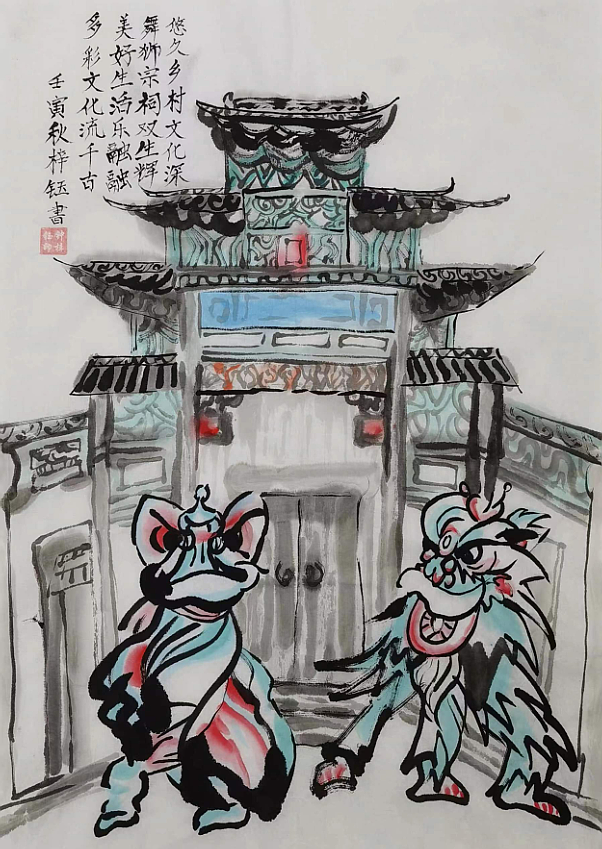 悠久乡村文化深
舞狮宗祠双生辉
美好生活乐融融
多彩文化流千古
壬寅秋梓钰書